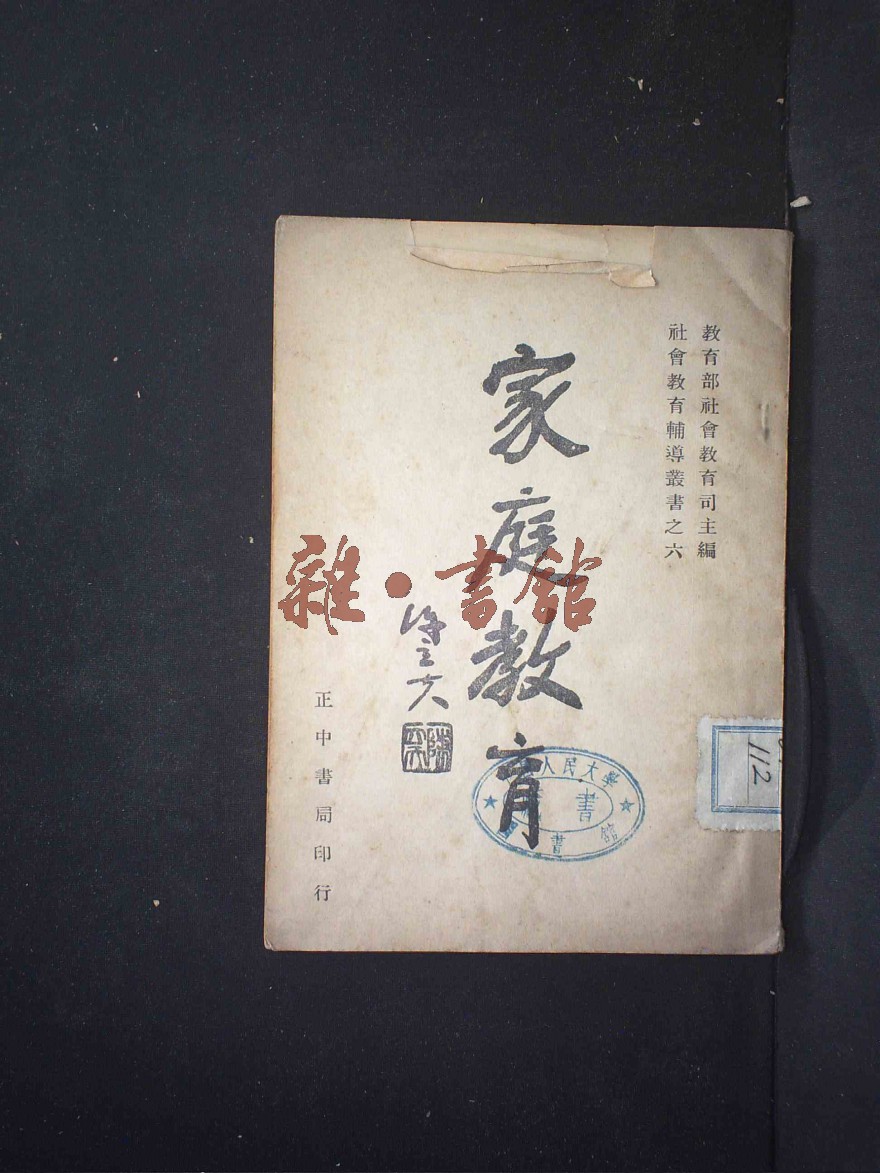 教育部社會教育司主編
社會教育輔導叢書之六
家庭教育
陳立夫
正中書局印行
人民大學
書
書館
112
雜·書館